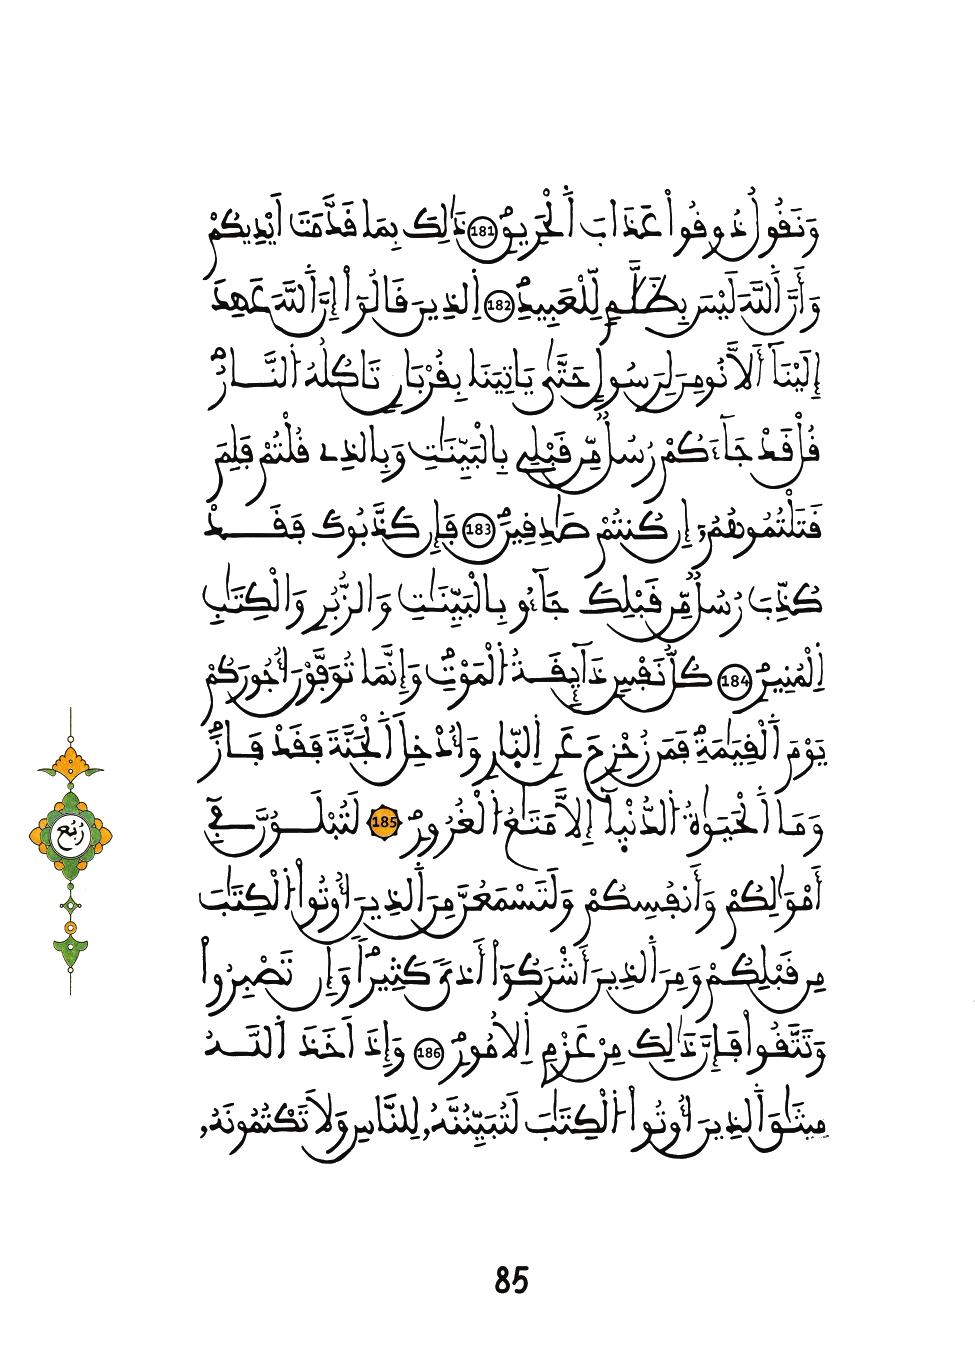 وَنَقُولُ ذُوقُوا۟ عَذَابَ اَ۬لْحَرِيقِۖ 181 ذَٰلِكَ بِمَا قَدَّمَتَ اَيْدِيكُمْ
وَأَنَّ اَ۬للَّهَ لَيْسَ بِظَلَّٰمٖ لِّلْعَبِيدِۖ 182 اِ۬لذِينَ قَالُوٓا۟ إِنَّ اَ۬للَّهَ عَهِدَ
إِلَيْنَآ أَلَّا نُومِنَ لِرَسُولٍ حَتَّىٰ يَاتِيَنَا بِقُرْبَانٖ تَاكُلُهُ اُ۬لنَّارُۖ
قُلْ قَدْ جَآءَكُمْ رُسُلٞ مِّن قَبْلِے بِالْبَيِّنَٰتِ وَبِالذِے قُلْتُمْ فَلِمَ
قَتَلْتُمُوهُمُۥٓ إِن كُنتُمْ صَٰدِقِينَۖ 183 فَإِن كَذَّبُوكَ فَقَدْ
كُذِّبَ رُسُلٞ مِّن قَبْلِكَ جَآءُو بِالْبَيِّنَٰتِ وَالزُّبُرِ وَالْكِتَٰبِ
اِ۬لْمُنِيرِۖ 184 كُلُّ نَفْسٖ ذَآئِقَةُ اُ۬لْمَوْتِۖ وَإِنَّمَا تُوَفَّوْنَ أُجُورَكُمْ
يَوْمَ اَ۬لْقِيَٰمَةِۖ فَمَن زُحْزِحَ عَنِ اِ۬لنّ۪ارِ وَأُدْخِلَ اَ۬لْجَنَّةَ فَقَدْ فَازَۖ
وَمَا اَ۬لْحَيَوٰةُ اُ۬لدُّنْي۪آ إِلَّا مَتَٰعُ اُ۬لْغُرُورِۖ 185 لَتُبْلَوُنَّ فِےٓ
أَمْوَٰلِكُمْ وَأَنفُسِكُمْ وَلَتَسْمَعُنَّ مِنَ اَ۬لذِينَ أُوتُوا۟ اُ۬لْكِتَٰبَ
مِن قَبْلِكُمْ وَمِنَ اَ۬لذِينَ أَشْرَكُوٓا۟ أَذىٗ كَثِيراٗۖ وَإِن تَصْبِرُوا۟
وَتَتَّقُوا۟ فَإِنَّ ذَٰلِكَ مِنْ عَزْمِ اِ۬لُامُورِۖ 186 وَإِذَ اَخَذَ اَ۬للَّهُ
مِيثَٰقَ اَ۬لذِينَ أُوتُوا۟ اُ۬لْكِتَٰبَ لَتُبَيِّنُنَّهُۥ لِلنَّاسِ وَلَا تَكْتُمُونَهُۥ
رُبُع
85